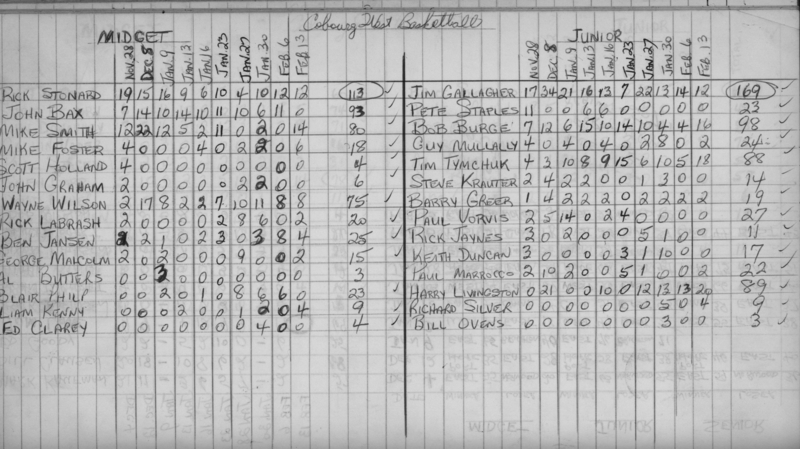 Cobourg West Basketball
MIDGET JUNIOR
NOV.28 DEC 8 JAN.9 JAN.13 JAN 16 JAN.23 JAN.27 JAN.30 FEB 6 FEB 13 NOV.28 DEC 8 JAN 9 JAN 13 JAN.16 JAN.23 JAN.27 JAN 30 FEB 6 FEB.13
RICK STONARD 19 15 16 9 6 10 4 10 12 12 113 ✓ JIM GALLAGHER 17 34 21 16 13 7 22 13 14 12 169 ✓
JOHN BAX 7 14 10 14 10 11 10 6 11 0 93 ✓ PETE STAPLES 11 0 0 6 6 0 0 0 0 0 23 ✓
MIKE SMITH 12 22 12 5 2 11 0 2 0 14 80 ✓ BOB BURGE 7 12 6 15 10 14 10 4 4 16 98 ✓
MIKE FOSTER 4 0 0 0 4 0 2 2 0 6 18 ✓ GUY MULLALLY 4 0 4 0 4 0 2 8 0 2 24 ✓
SCOTT HOLLAND 4 0 0 0 0 0 0 0 0 0 4 ✓ TIM TYMCHUK 4 3 10 8 9 15 6 10 5 18 88 ✓
JOHN GRAHAM 2 0 0 0 0 0 2 2 0 0 6 ✓ STEVE KRAUTER 2 4 2 2 0 0 1 3 0 0 14 ✓
WAYNE WILSON 2 17 8 2 2 7 10 11 8 8 75 ✓ BARRY GREER 1 4 2 2 2 0 2 2 2 2 19 ✓
RICK LABRASH 2 0 0 0 0 2 8 6 0 2 20 ✓ PAUL VORVIS 2 5 14 0 2 4 0 0 0 0 27 ✓
BEN JANSEN 2 2 1 0 2 3 0 3 8 4 25 ✓ RICK JAYNES 3 0 2 0 0 0 5 1 0 0 11 ✓
GEORGE MALCOLM 2 0 2 0 0 0 9 0 0 2 15 ✓ KEITH DUNCAN 3 0 0 0 0 3 1 10 0 0 17 ✓
AL BUTTERS 0 0 3 0 0 0 0 0 0 0 3 ✓ PAUL MARROCCO 2 10 2 0 0 5 1 0 0 2 22 ✓
BLAIR PHILP 0 0 2 0 1 0 8 6 6 0 23 ✓ HARRY LIVINGSTON 0 21 0 0 10 0 12 13 13 20 89 ✓
LIAM KENNY 0 0 0 2 0 0 1 2 0 4 9 ✓ RICHARD SILVER 0 0 0 0 0 0 0 5 0 4 9 ✓
ED CLAREY 0 0 0 0 0 0 0 4 0 0 4 ✓ BILL OVENS 0 0 0 0 0 0 0 3 0 0 3 ✓